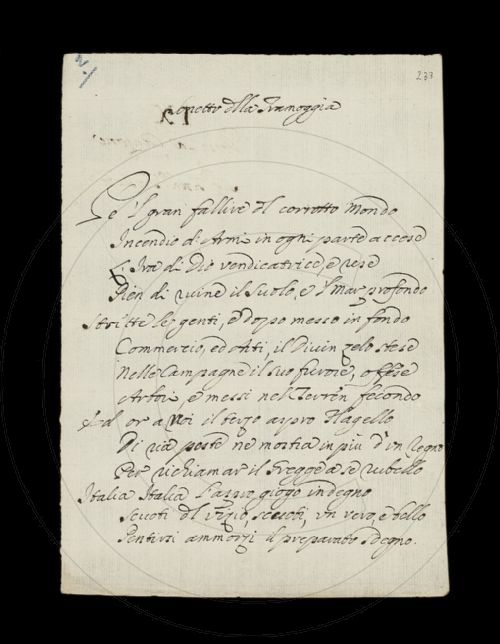 233
2.
Sonetto della Tramoggia
Se 'l gran fallire del corrotto Mondo
Incendio di Armi in ogni parte accese
L'Ira di Dio vendicatrice, e rese
Pien di ruine il Suolo, e 'l Mar profondo
Strutte le genti, e dopo messo in fondo
Commercio, ed Arti, il Divin zelo stese
Nelle Campagne il suo furore, offese
Arbori, e messi nel Terren fecondo
Ed or a Noi il terzo aspro Flagello
Di ria peste ne mostra in più d'un segno
Per richiamar il Gregge a sè rubello
Italia Italia l'aspro giogo indegno
Scuoti del vizio, scuoti, un vero, e bello
Pentirsi ammorzi il preparato sdegno.